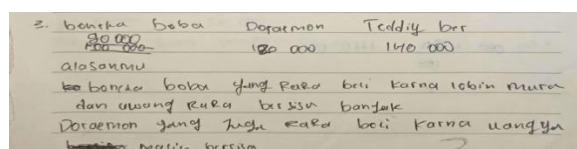 3. boneka boba Doraemon Teddiy ber
90 000 120 000 140 000
alasanmu
boneka boba yang Rara beli karna lebih mura
dan uwang Rara bersisa banyak
Doraemon yang juga Rara beli karna uangya
masih bersisa